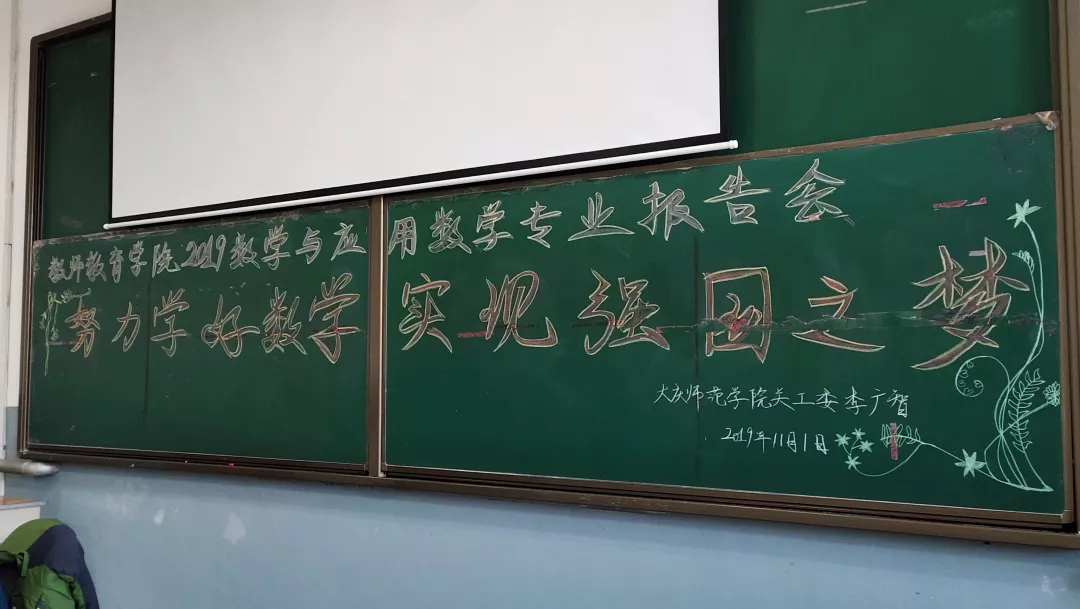 教师教育学院2019数学与应用数学专业报告会
努力学好数学 实现强国之梦
大庆师范学院关工委李广智
2019年11月1日